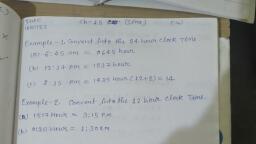 DATE
Ch-15 (Time) C.W
Example-1 Convert into the 24 hour clock Time
(a) 6:45 am = 0645 hour
(b) 12:37 pm = 1237 hour
(c) 2:35 pm = 1435 hour (12+2) = 14
Example-2 Convert into the 12 hour clock Time.
(a) 1515 hour = 3:15 P.M
(b) 0130 hour = 1:30 A.M